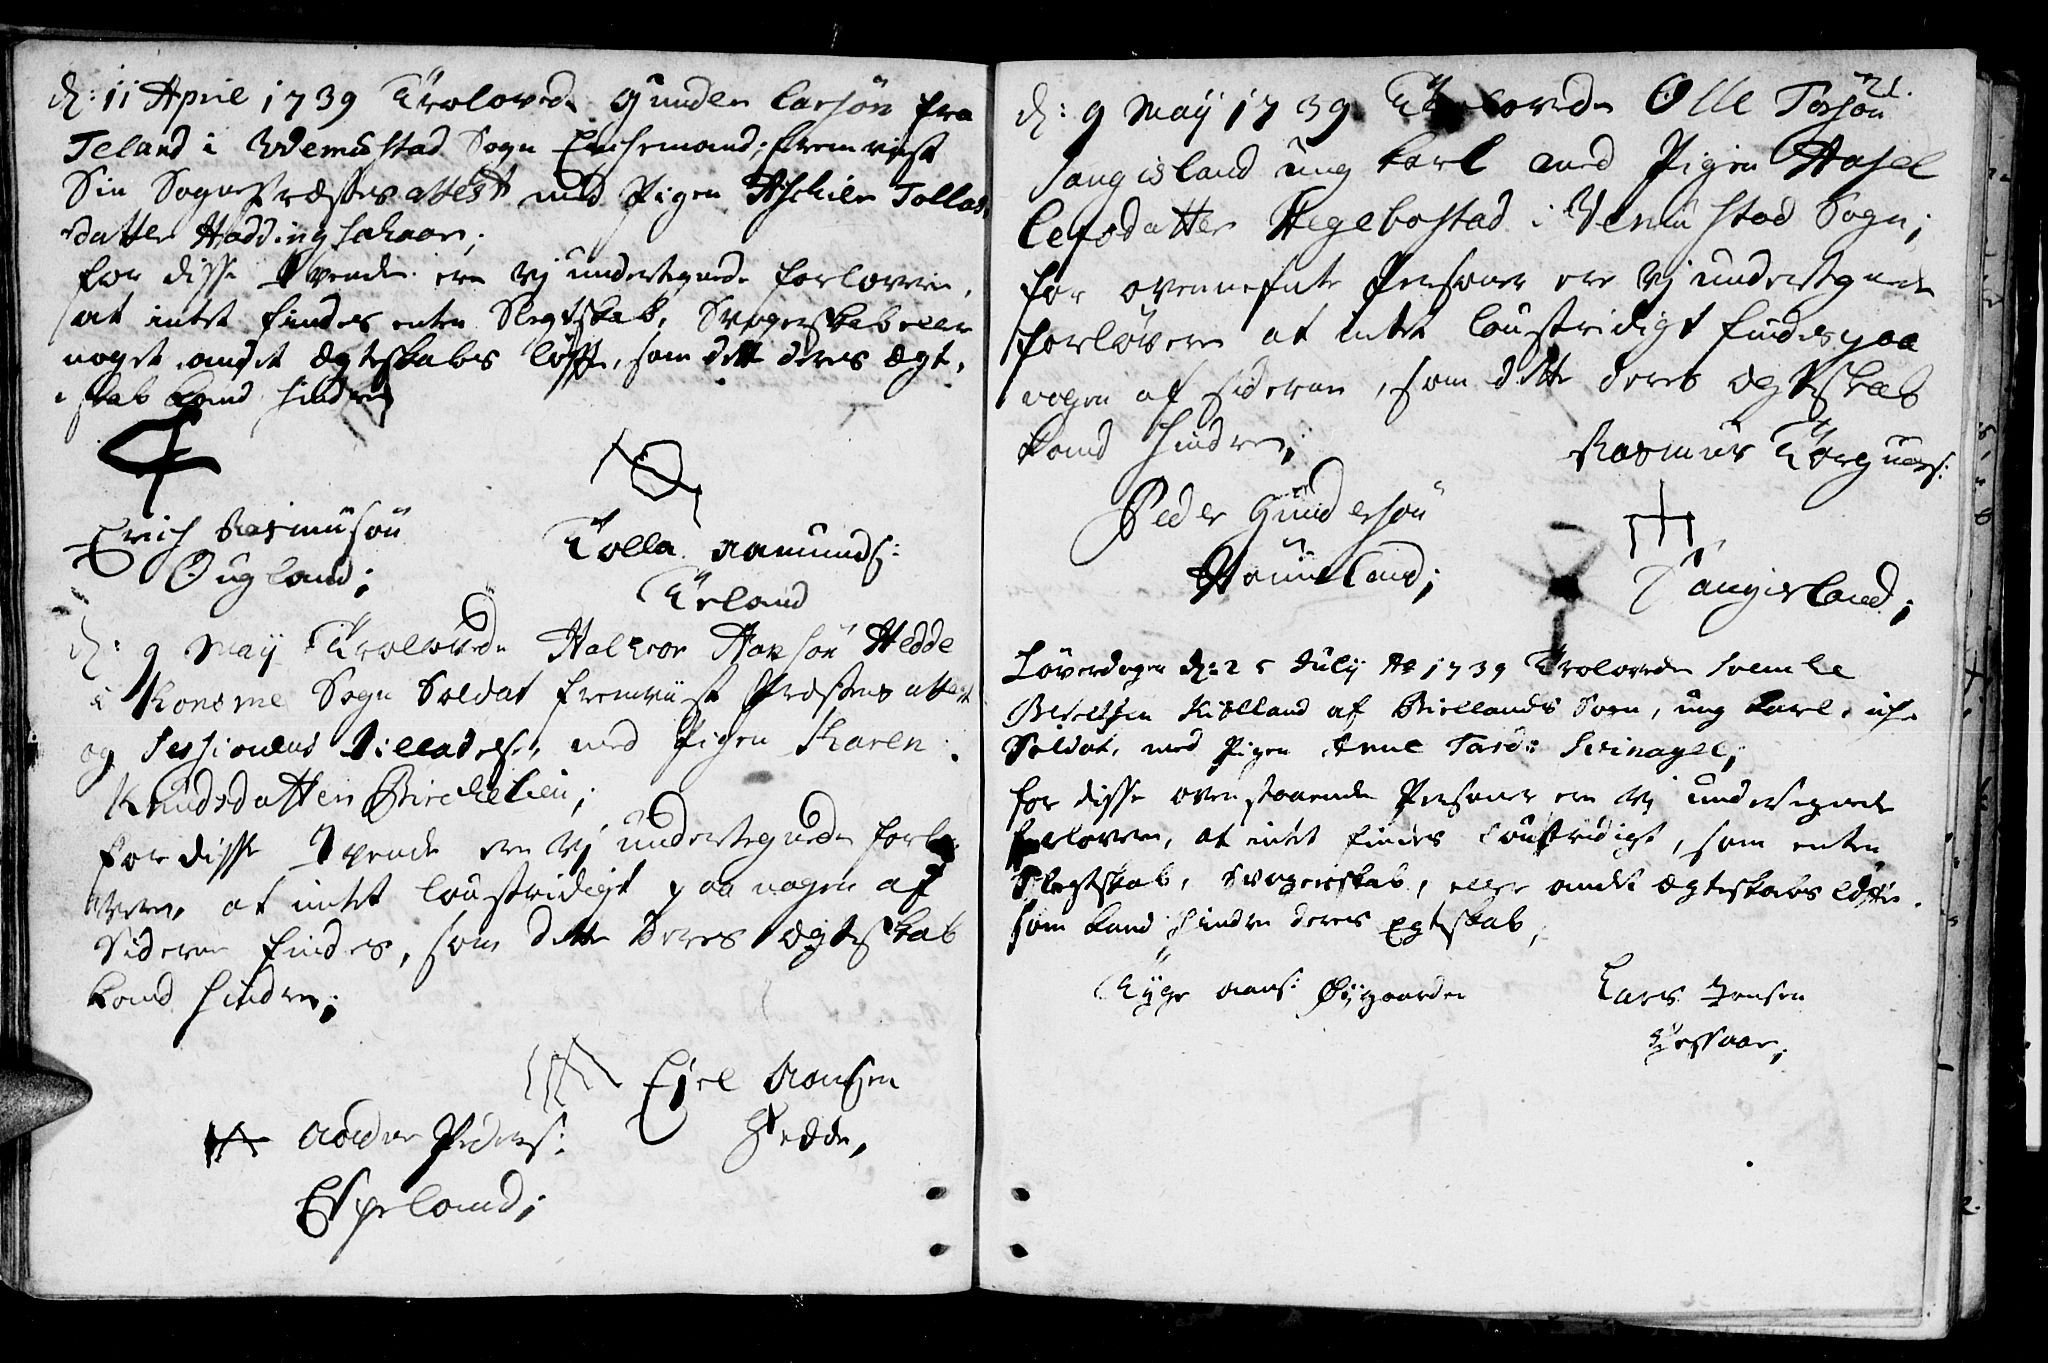 d: 11 April 1739 Trolovede Gunder Larsön fra
Teland i Udemustad Sogn Enchemand; fremvist
Sin Sogne Præstes attest med Pigen Aschier Tollas
datter Haddingskaar;
for disse Tvende ere Vj undertegnede forlovere,
at intet findes enten Slegtskab, Svogerskab eller
noget andet Ægteskabs löffte, som dette deres Ægt,
skab kand hindre
Erich Rasmusön
Ougland;
Tolla Aamunds:
Teland
d: 9 Maÿ Trolovede Halvor Hansön Hedde
i Konsme Sogn Soldat fremviist Præstens attest
og Sessionens Tilladelse, med Pigen Karen
Knudsdatter Birchelien;
For disse Tvende ere Vj undertegnede forlo
vere, at intet loustridigt paa nogen af
Siderne findes, som dette deres Ægteskab
kand hindre;
Ejel Aansen
Hedde,
Peders:
Espeland;
21.
d: 9 Maÿ 1739 Trolovede Olle Torsön
Sangisland ung karl med Pigen Assel
Lefsdatter Hegebostad i Udemustad Sogn;
for ovennefnte Personer ere Vj undertegnede
forlovere at intet loustridigt findes paa
nogen af siderne, som dette deres Ægteskab
kand hindre;
Rasmus Torguers:
Sangisland;
Peder Gundersön
Haaland;
Löverdagen d: 25 Julÿ Ao 1739 Trolovede Salemke
Kiölland af Biellands Sogn, ung karl, iche
Soldat, med Pigen Anne Tards: Svinagel;
for disse ovenstaaende Personer ere Vj undertegnede
forlovere, at intet findes loustridigt, som enten
Slegtskab, Svogerskab, eller andet Ægteskabs löffte,
som kand hindre deres Egteskab;
Tÿge Aans: Öÿgaarden
Lars Jensen